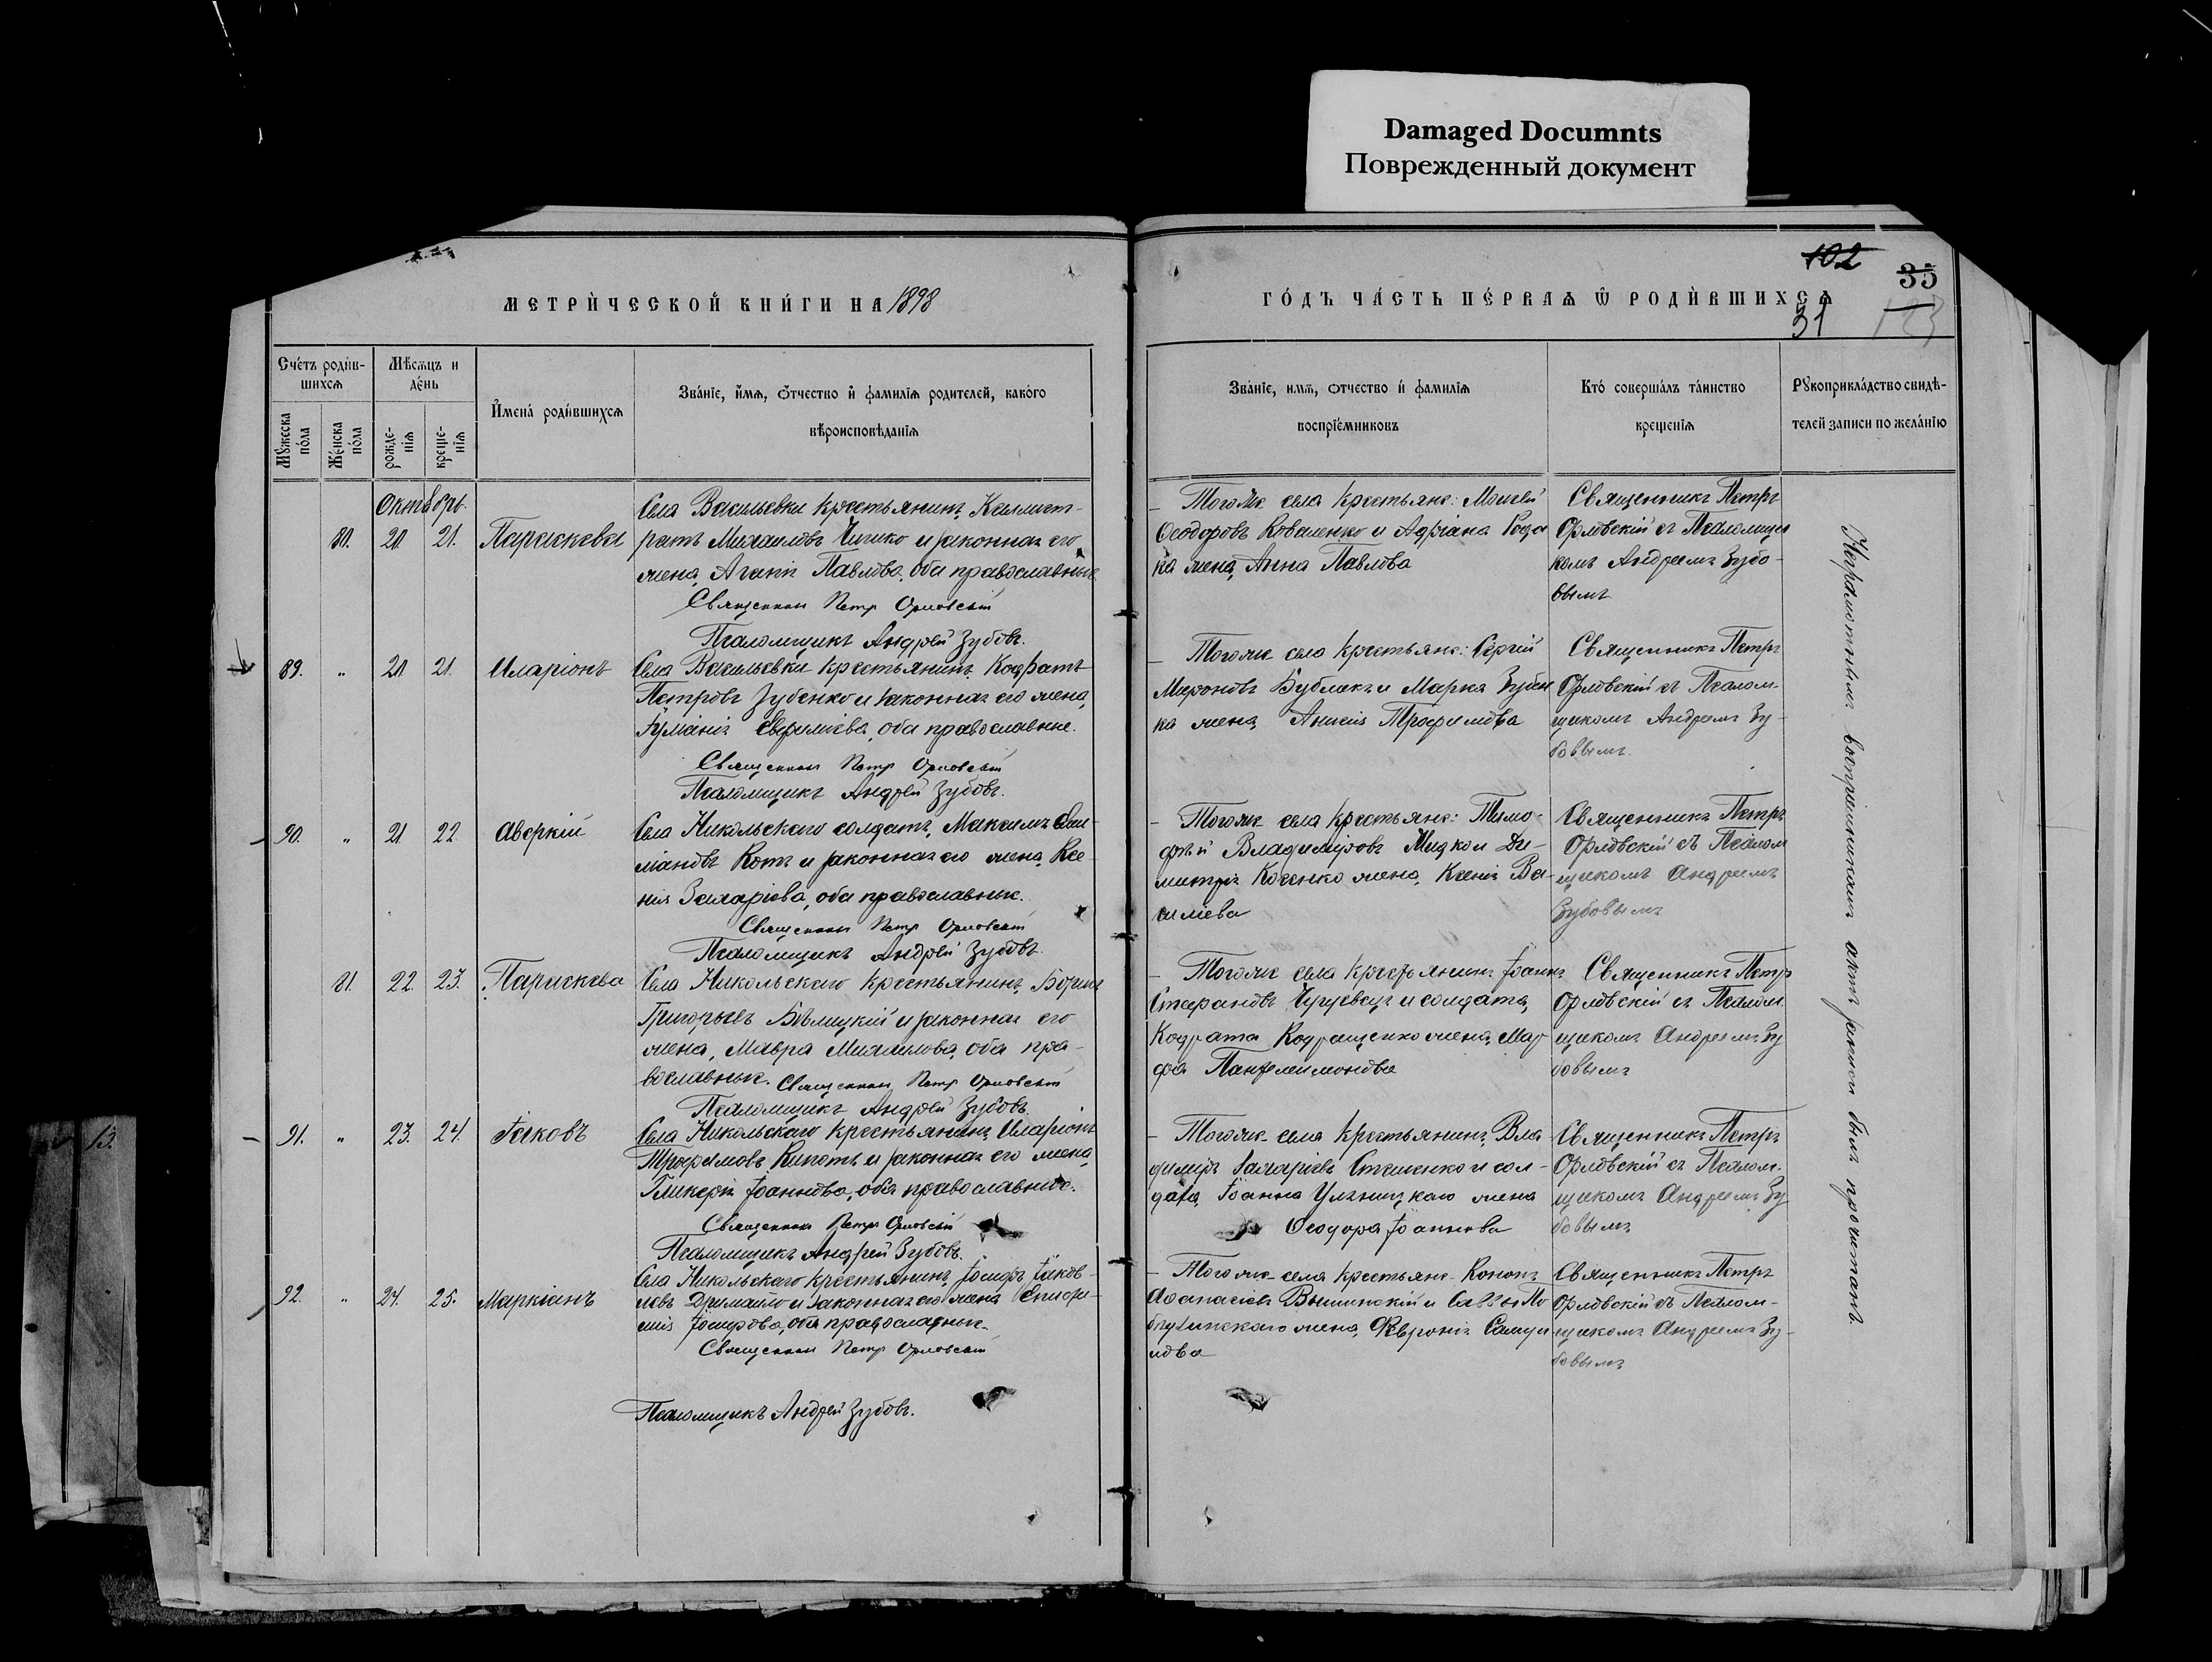 Damaged Documnts
Поврежденный документ
102
35
МЕТРИ́ЧЕСКОЙ КНИ́ГИ НА 1898
ГО́ДЪ ЧА́СТЬ ПЕ́РВАѦ Ѿ РОДИ́ВШИХСѦ
31
Сче́тъ роди́в-
шихсѧ
Мѣ́сѧцъ и
де́нь
Мꙋжеска
по́ла
Же́нска
по́ла
рожде-
нїѧ
креще-
нїѧ
И́мена́ роди́вшихсѧ
Зва́нїе, и́мѧ, о́тчество и́ фамилїѧ родителей, како́го
вѣроисповѣ́данїѧ
Зва́нїе, имѧ, отчество и́ фамилїѧ
воспрїе́мниковъ
Кто́ соверша́лъ та́инство
креще́нїѧ
Рꙋкоприкла́дство свидѣ́-
телей записи по жела́нїю
Октябрь.
80. 20. 21. Параскева
Села Васильевки крестьянинъ, Каллист-
ратъ Михаиловъ Чичко и законная его
жена, Агапія Павлова, оба православные
Священник Петр Орловскій
Псаломщикъ Андрей Зубовъ.
Тогоже села крестьяне: Моисей
Ѳеодоровъ Коваленко и Адріана
ка жена, Анна Павлова
Священникъ Петръ
Орловскій съ Псаломщи
комъ Андреемъ Зубо-
вымъ
89. " 20. 21. Иларіонъ
Села Васильевки крестьянинъ, Кодратъ
Петровъ Зубенко и законная его жена,
Іуліанія Евфиміева, оба православные.
Священник Петр Орловскій
Псаломщикъ Андрей Зубовъ.
Тогоже села крестьяне: Сергій
Мироновъ Бубликъ и Марка Зубен
ка жена, Анисія Трофимова
Священникъ Петръ
Орловскій съ Псалом-
щикомъ Андреемъ Зу-
бовымъ.
90. " 21. 22. Аверкій
Села Никольскаго солдатъ, Максимъ Еми-
ліановъ Котъ и законная его жена, Ксе-
нія Захаріева, оба православные.
Священник Петр Орловскій
Псаломщикъ Андрей Зубовъ.
Тогоже села крестьяне: Тимо-
фей Владиміровъ и Ди-
митрія Косенко жена, Ксенія Ва-
силіева
Священникъ Петръ
Орловскій съ Псалом
щикомъ Андреемъ
Зубовымъ
81. 22. 23. Параскева
Села Никольскаго крестьянинъ, Борисъ
Григорьевъ Бѣлицкій и законная его
жена, Мавра Михаилова, оба пра-
вославные. Священник Петр Орловскій
Псаломщикъ Андрей Зубовъ.
Тогоже села крестьянинъ Іоаннъ
Стефановъ и солдата,
Кодрата Кодращенко жена, Мар
фа Пантелеимонова
Священникъ Петр
Орловскій съ Псалом
щикомъ Андреемъ Зу
бовымъ
91. " 23. 24. Іаковъ
Села Никольскаго крестьянинъ, Иларіонъ
Трофимовъ и законная его жена,
Гликерія Іоаннова, оба православные.
Священник Петр Орловскій
Псаломщикъ Андрей Зубовъ.
Тогоже села крестьянинъ, Вла
диміръ Захаріевъ Стешенко и сол-
дата, Іоанна жена
Ѳеодора Іоаннова
Священникъ Петръ
Орловскій съ Псалом.
щикомъ Андреемъ Зу
бовымъ
92. " 24. 25. Маркіанъ
Села Никольскаго крестьянинъ, Іосифъ Іаков-
левъ Дримайло и законная его жена Еписти-
мія Іосифова, оба православные.
Священник Петр Орловскій
Псаломщикъ Андрей Зубовъ.
Тогоже села крестьяне Кононъ
Аѳанасіевъ Вышинскій и Саввы По
жена, Февронія Самуи
лова
Священникъ Петръ
Орловскій съ Псалом-
щикомъ Андреемъ Зу-
бовымъ
Неграмотнымъ воспріемникамъ актъ записи былъ прочитанъ.
13.